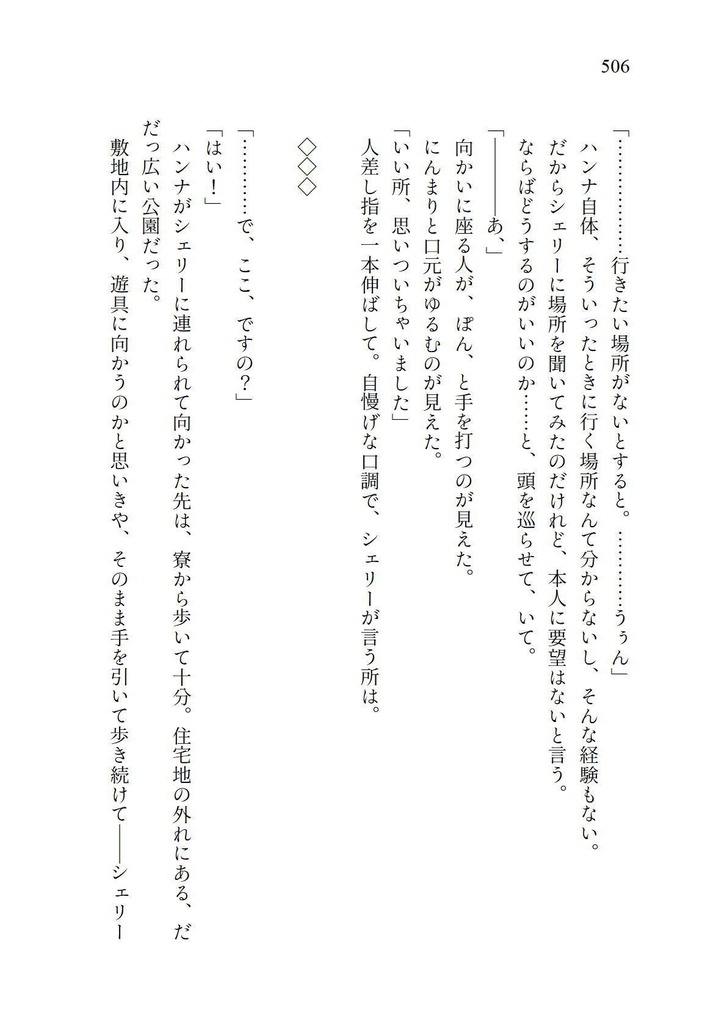 506
「………………行きたい場所がないとすると。…………うぅん」
ハンナ自体、そういったときに行く場所なんて分からないし、そんな経験もない。
だからシェリーに場所を聞いてみたのだけれど、本人に要望はないと言う。
ならばどうするのがいいのか……と、頭を巡らせて、いて。
「――――あ、」
向かいに座る人が、ぽん、と手を打つのが見えた。
にんまりと口元がゆるむのが見えた。
「いい所、思いついちゃいました」
人差し指を一本伸ばして。自慢げな口調で、シェリーが言う所は。
◇◇◇
「…………で、ここ、ですの？」
「はい！」
ハンナがシェリーに連れられて向かった先は、寮から歩いて十分。住宅地の外れにある、だ
だっ広い公園だった。
敷地内に入り、遊具に向かうのかと思いきや、そのまま手を引いて歩き続けて――シェリー